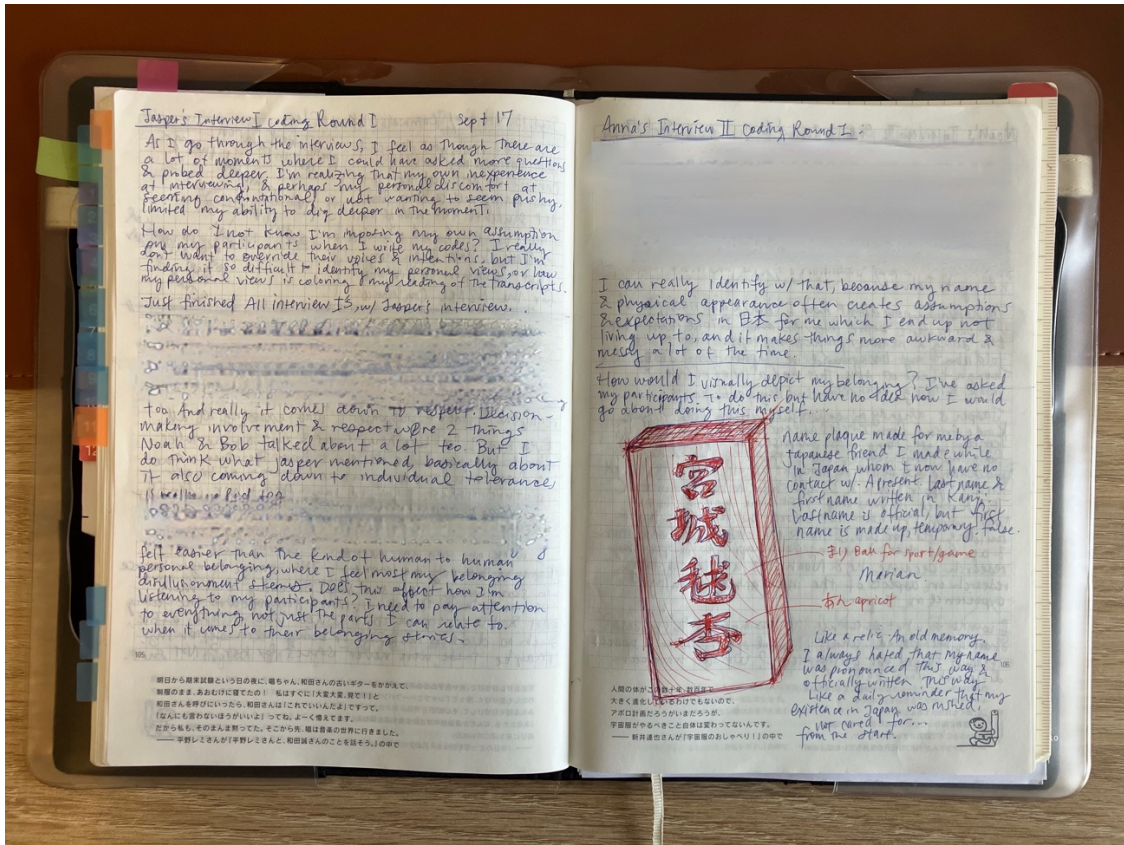 Jasper's Interview I coding Round I Sept 17
As I go through the interviews, I feel as though there are
a lot of moments where I could have asked more questions
& probed deeper. I'm realizing that my own inexperience
at interviewing, & perhaps my personal discomfort at
seeming confrontational or not wanting to seem pushy,
limited my ability to dig deeper in the moment.
How do I not know I'm imposing my own assumption
on my participants when I write my codes? I really
don't want to override their voices & intentions, but I'm
finding it so difficult to identify my personal views, or how
my personal views is coloring my reading of the transcripts.
Just finished All interview IS, w/ Jasper's interview.
too. And really it comes down to respect. Decision-
making involvement & respect were 2 things
Noah & Bob talked about a lot too. But I
do think what Jasper mentioned, basically about
it also coming down to individual tolerance,
felt easier than the kind of human to human
personal belonging, where I feel most my belonging
disillusionment stems. Does this affect how I'm
listening to my participants? I need to pay attention
to everything, not just the parts I can relate to
when it comes to their belonging stories.
105
明日から期末試験という日の夜に、唱ちゃん、和田さんの古いギターをかかえて、
制服のまま、あおむけに寝てたの！ 私はすぐに「大変大変、見て！」と
和田さんを呼びにいったら、和田さんは「これでいいんだよ」ですって。
「なんにも言わないほうがいいよ」ってね。よーく憶えてます。
だから私も、そのまんま黙ってた。そこから先、唱は音楽の世界に行きました。
——平野レミさんが『平野レミさんと、和田誠さんのことを話そう。』の中で
Anna's Interview II coding Round I.
I can really identify w/ that, because my name
& physical appearance often creates assumptions
& expectations in 日本 for me which I end up not
living up to, and it makes things more awkward &
messy a lot of the time.
How would I visually depict my belonging? I've asked
my participants to do this but have no idea how I would
go about doing this myself...
宮
城
毬
杏
name plaque made for me by a
Japanese friend I made while
in Japan whom I now have no
contact w/. A present. Last name &
first name written in Kanji.
Last name is official, but first
name is made up, temporary. false.
まり Ball for sport/game
Marian
あん apricot
Like a relic. An old memory.
I always hated that my name
was pronounced this way &
officially written this way.
Like a daily reminder that my
existence in Japan was rushed,
not cared for...
from the start.
106
人間の体がこの数十年、数百年で
大きく進化しているわけでもないので、
アポロ計画だろうがいまだろうが、
宇宙服がやるべきこと自体は変わってないんです。
——新井達也さんが『宇宙服のおしゃべり！』の中で